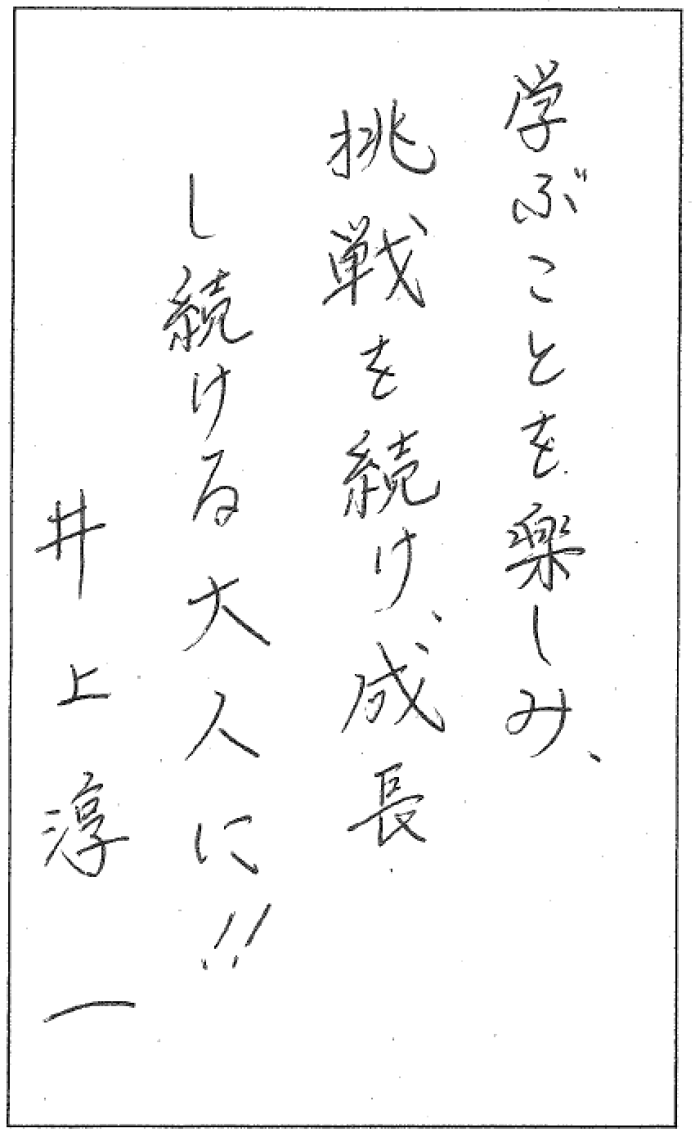 学ぶことを楽しみ、
挑戦を続け、成長
し続ける大人に!!
井上淳一